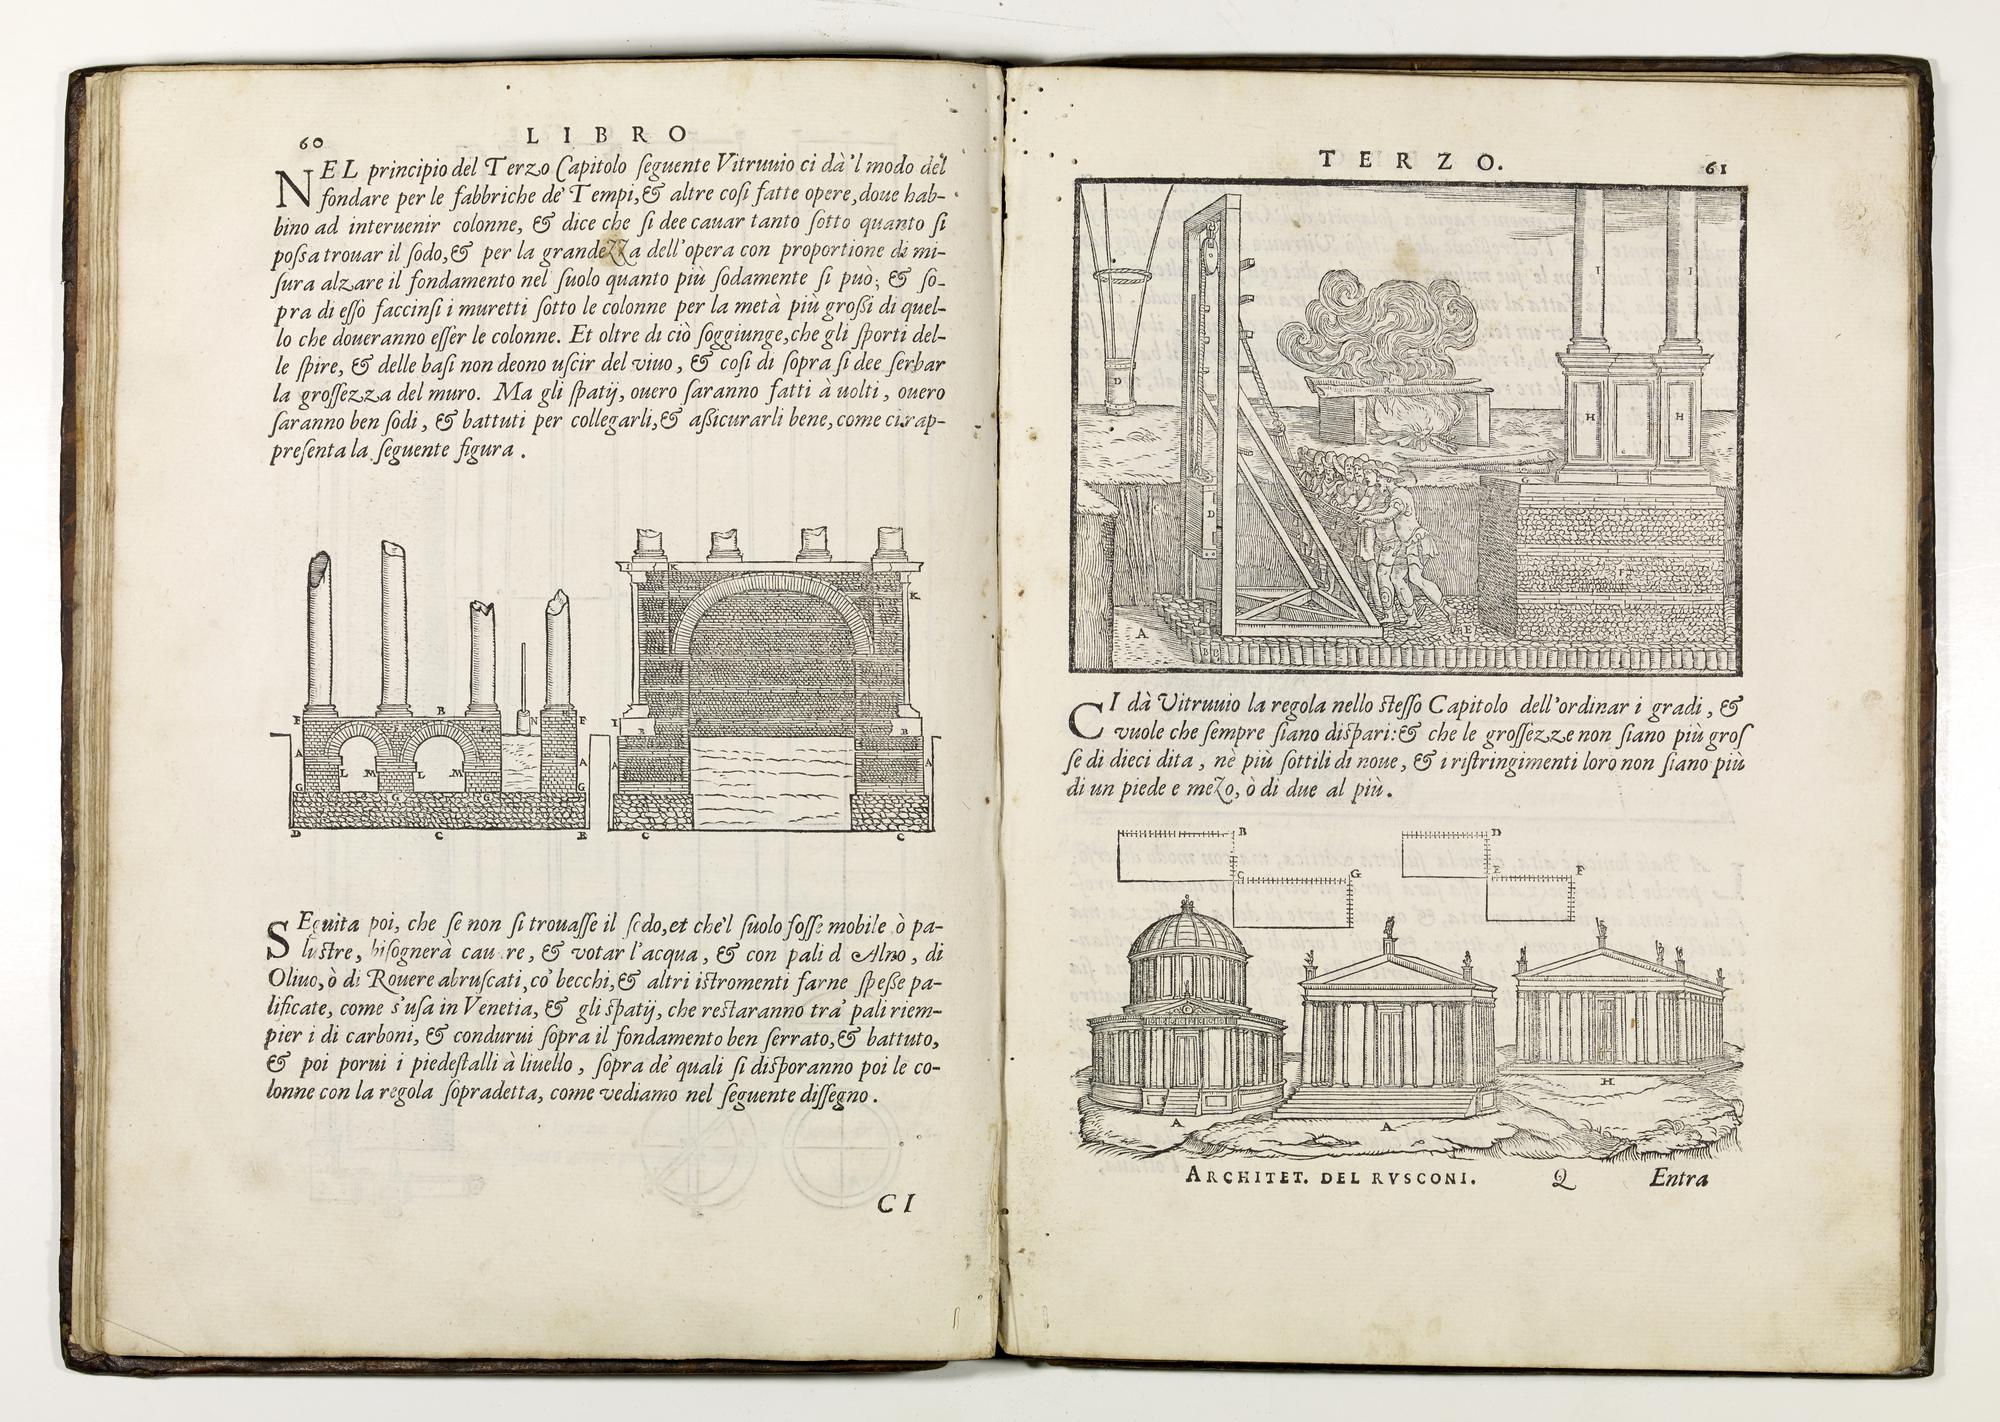 60
LIBRO
NEL principio del Terzo Capitolo ſeguente Vitruuio ci dà 'l modo del
fondare per le fabbriche de' Tempi, & altre coſi fatte opere, doue hab-
bino ad interuenir colonne, & dice che ſi dee cauar tanto ſotto quanto ſi
poſſa trouar il ſodo, & per la grandezza dell'opera con proportione di mi-
ſura alzare il fondamento nel ſuolo quanto più ſodamente ſi può; & ſo-
pra di eſſo faccinſi i muretti ſotto le colonne per la metà più groſſi di quel-
lo che doueranno eſſer le colonne. Et oltre di ciò ſoggiunge, che gli ſporti del-
le ſpire, & delle baſi non deono uſcir del viuo, & coſi di ſopra ſi dee ſerbar
la groſſezza del muro. Ma gli ſpatij, ouero ſaranno fatti à uolti, ouero
ſaranno ben ſodi, & battuti per collegarli, & aſſicurarli bene, come ci rap-
preſenta la ſeguente figura.
I K
K
F B N F I
F
B B
A A A A
L M L M
G G G G
D C E C C
SEguita poi, che ſe non ſi trouaſſe il ſodo, et che'l ſuolo foſſe mobile ò pa-
luſtre, biſognerà cauare, & votar l'acqua, & con pali d'Alno, di
Oliuo, ò di Rouere abruſcati, co' becchi, & altri iſtromenti farne ſpeſſe pa-
lificate, come s'uſa in Venetia, & gli ſpatij, che reſtaranno tra' pali riem-
pier i di carboni, & condurui ſopra il fondamento ben ſerrato, & battuto,
& poi porui i piedeſtalli à liuello, ſopra de' quali ſi diſporanno poi le co-
lonne con la regola ſopradetta, come vediamo nel ſeguente diſſegno.
CI
TERZO.
61
I I
D
H H
C G
C D
F
A E
B B
CI dà Vitruuio la regola nello ſteſſo Capitolo dell'ordinar i gradi, &
vuole che ſempre ſiano diſpari: & che le groſſezze non ſiano più groſ
ſe di dieci dita, nè più ſottili di noue, & i riſtringimenti loro non ſiano più
di un piede e mezo, ò di due al più.
B D
C G E F
H
A A
ARCHITET. DEL RVSCONI.
Q
Entra